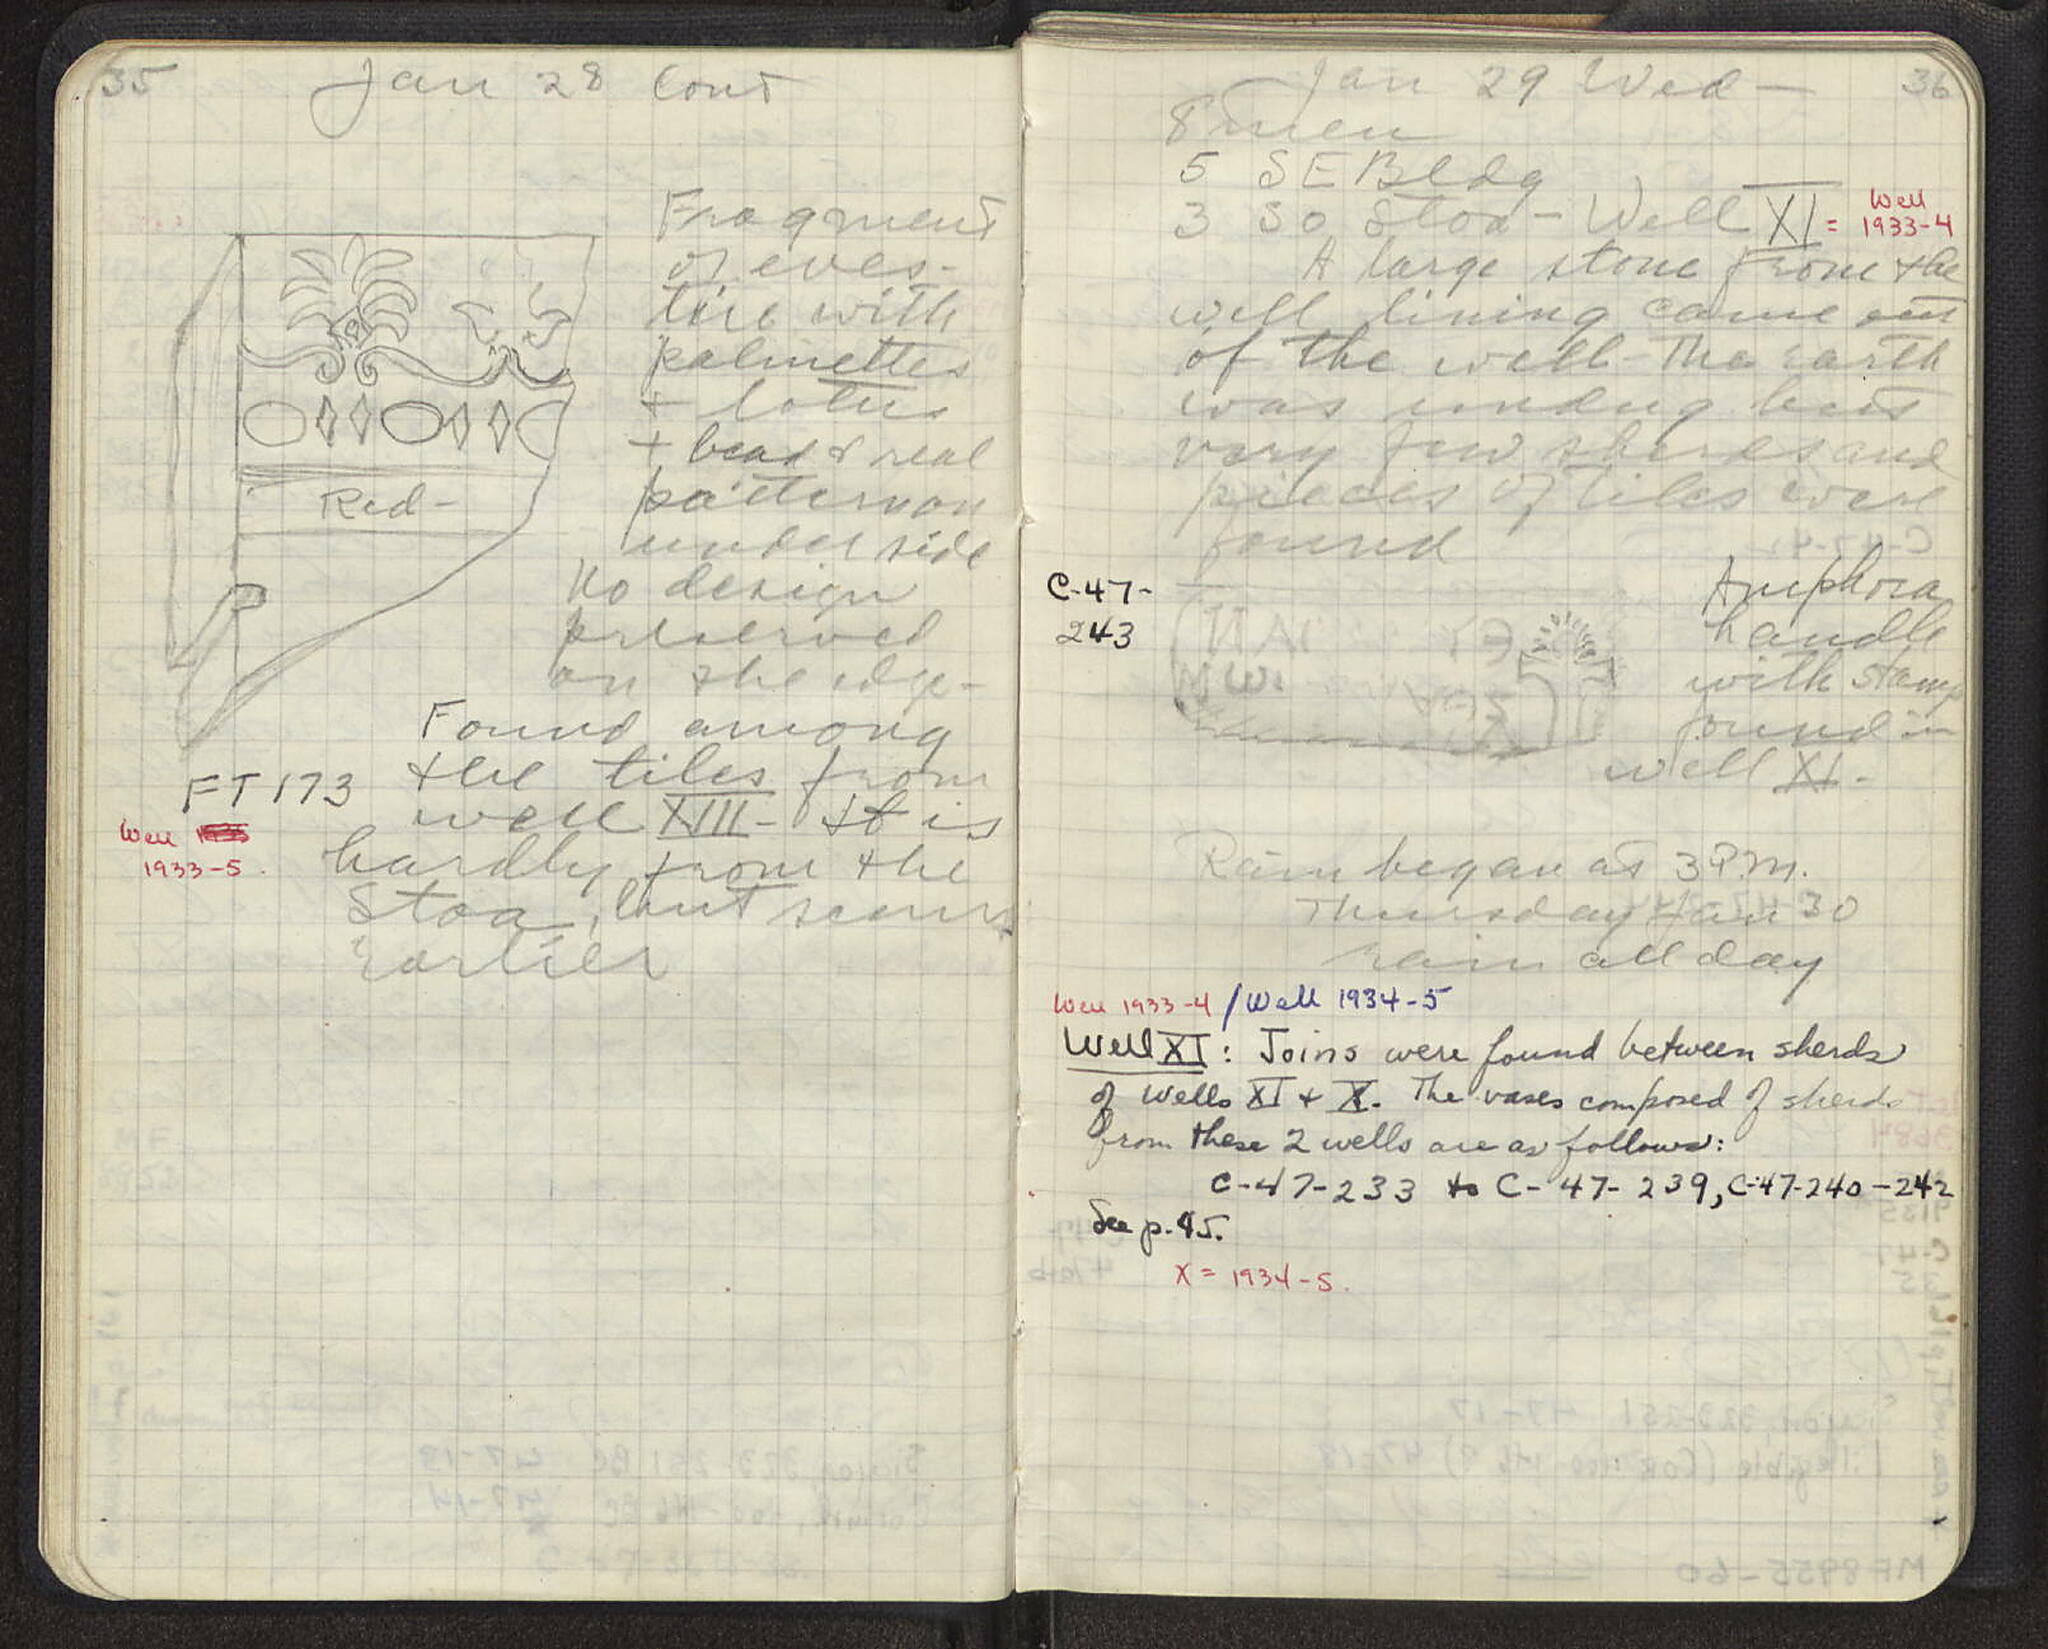 35
Jan 28 Cont
Fragment
of eves-
tile with
palmettes
+ lotus
+ bead & reel
pattern on
under side
No design
preserved
on the edge-
Red-
Found among
the tiles from
well XIII- It is
hardly from the
Stoa, but seems
Earlier
FT 173
Well
1933-5.
Jan 29 Wed-
36
8 men
5 SE Bldg
3 So Stoa - Well XI = Well 1933-4
A large stone from the
well lining came out
of the well The earth
was undug but
very few sherds and
pieces of tiles were
found
C-47-
243
Amphora
handle
with stamp
found in
well XI-
Rain began at 3 P.M.
Thursday Jan 30
rain all day
Well 1933-4 / Well 1934-5
Well XI: Joins were found between sherds
of wells XI + X. The vases composed of sherds
from these 2 wells are as follows:
C-47-233 to C-47-239, C-47-240-242
See p. 45.
X = 1934-5.